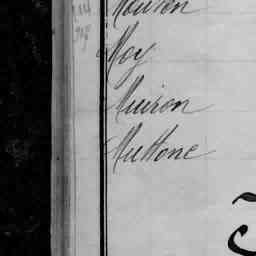 Mouren
Moy
Muiron
Muttone